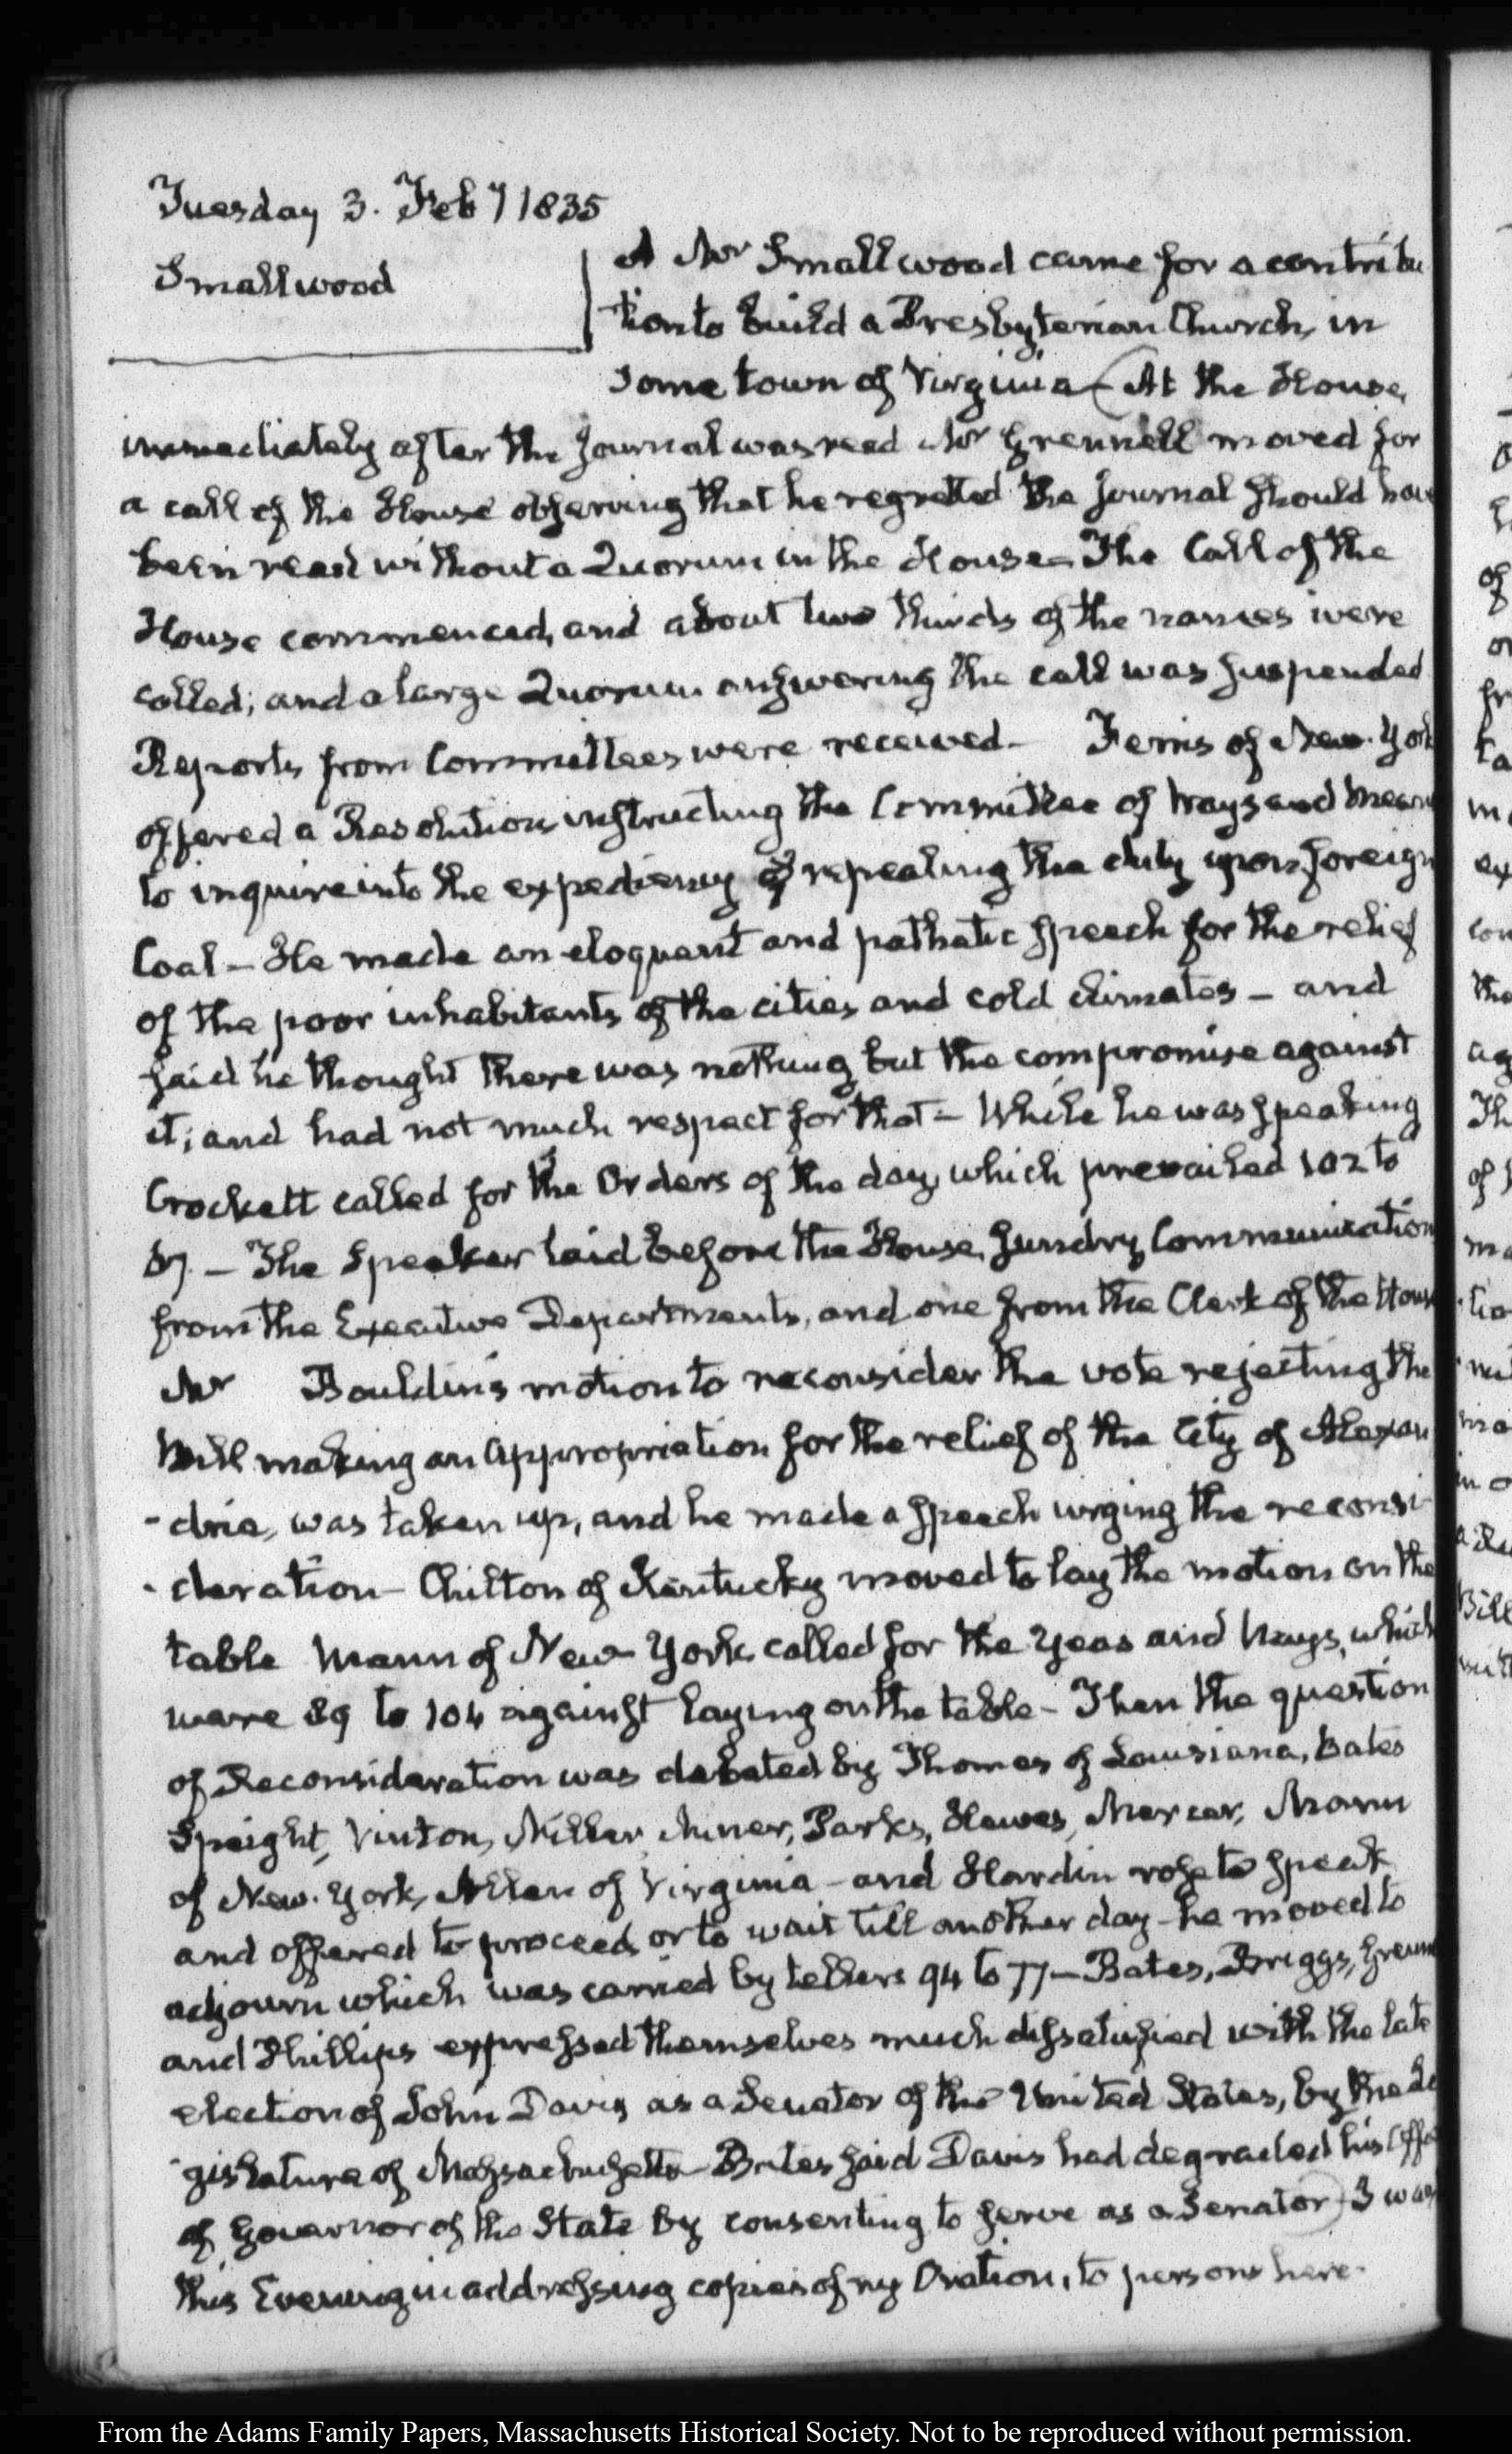 Tuesday 3. Feby 1835
Smallwood
A Mr Smallwood came for a contribu
tion to build a Presbyterian Church, in
some town of Virginia — (At the House,
immediately after the Journal was read Mr Grennell moved for
a call of the House observing that he regretted the Journal should have
been read without a Quorum in the House — The Call of the
House commenced, and about two thirds of the names were
called; and a large Quorum answering the call was suspended
Reports from Committees were received — Ferris of New-York
offered a Resolution instructing the Committee of Ways and Means
to inquire into the expediency of repealing the duty upon foreign
Coal — He made an eloquent and pathetic speech for the relief
of the poor inhabitants of the cities and cold climates — and
said he thought there was nothing but the compromise against
it; and had not much respect for that — While he was speaking
Crockett called for the Orders of the day, which prevailed 102 to
— The Speaker laid before the House, sundry Communication
from the Executive Departments, and one from the Clerk of the House
Mr Bouldin's motion to reconsider the vote rejecting the
Bill making an appropriation for the relief of the City of Alexan
-dria, was taken up, and he made a speech urging the reconsi-
-deration — Chilton of Kentucky moved to lay the motion on the
table Mann of New-York called for the Yeas and Nays, which
were 89 to 104 against laying on the table — Then the question
of Reconsideration was debated by Thomas of Louisiana, Bates
Speight, Vinton, Miller, Miner, Parks, Hawes, Mercer, Mann
of New-York, Allen of Virginia — and Hardin rose to speak
and offered to proceed, or to wait till another day — he moved to
adjourn which was carried by tellers 94 to 77 — Bates, Briggs, Grenn
and Phillips expressed themselves much dissatisfied with the late
election of John Davis as a Senator of the United States, by the Le
-gislature of Massachusetts — Bates said Davis had degraded his Offi
of Governor of the State by consenting to serve as a Senator) — I was
this Evening in addressing copies of my Oration, to persons here.
From the Adams Family Papers, Massachusetts Historical Society. Not to be reproduced without permission.